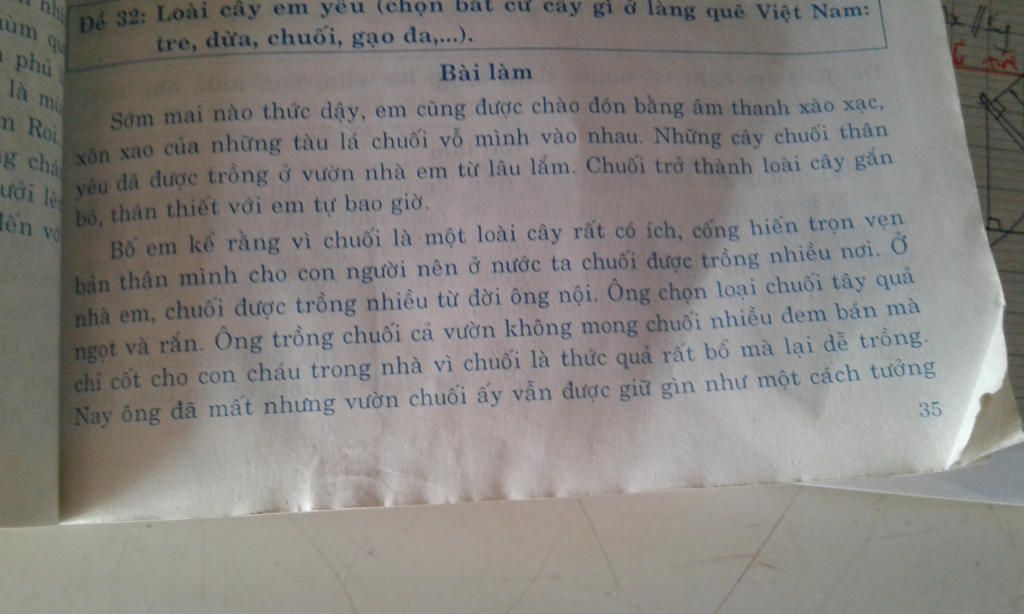 Đề 32: Loài cây em yêu (chọn bất cứ cây gì ở làng quê Việt Nam:
tre, dừa, chuối, gạo đa,...).
Bài làm
Sớm mai nào thức dậy, em cũng được chào đón bằng âm thanh xào xạc,
xôn xao của những tàu lá chuối vỗ mình vào nhau. Những cây chuối thân
yêu đã được trồng ở vườn nhà em từ lâu lắm. Chuối trở thành loài cây gắn
bó, thân thiết với em tự bao giờ.
Bố em kể rằng vì chuối là một loài cây rất có ích, cống hiến trọn vẹn
bản thân mình cho con người nên ở nước ta chuối được trồng nhiều nơi. Ở
nhà em, chuối được trồng nhiều từ đời ông nội. Ông chọn loại chuối tây quả
ngọt và rắn. Ông trồng chuối cả vườn không mong chuối nhiều đem bán mà
chỉ cốt cho con cháu trong nhà vì chuối là thức quả rất bổ mà lại dễ trồng.
Nay ông đã mất nhưng vườn chuối ấy vẫn được giữ gìn như một cách tưởng
35